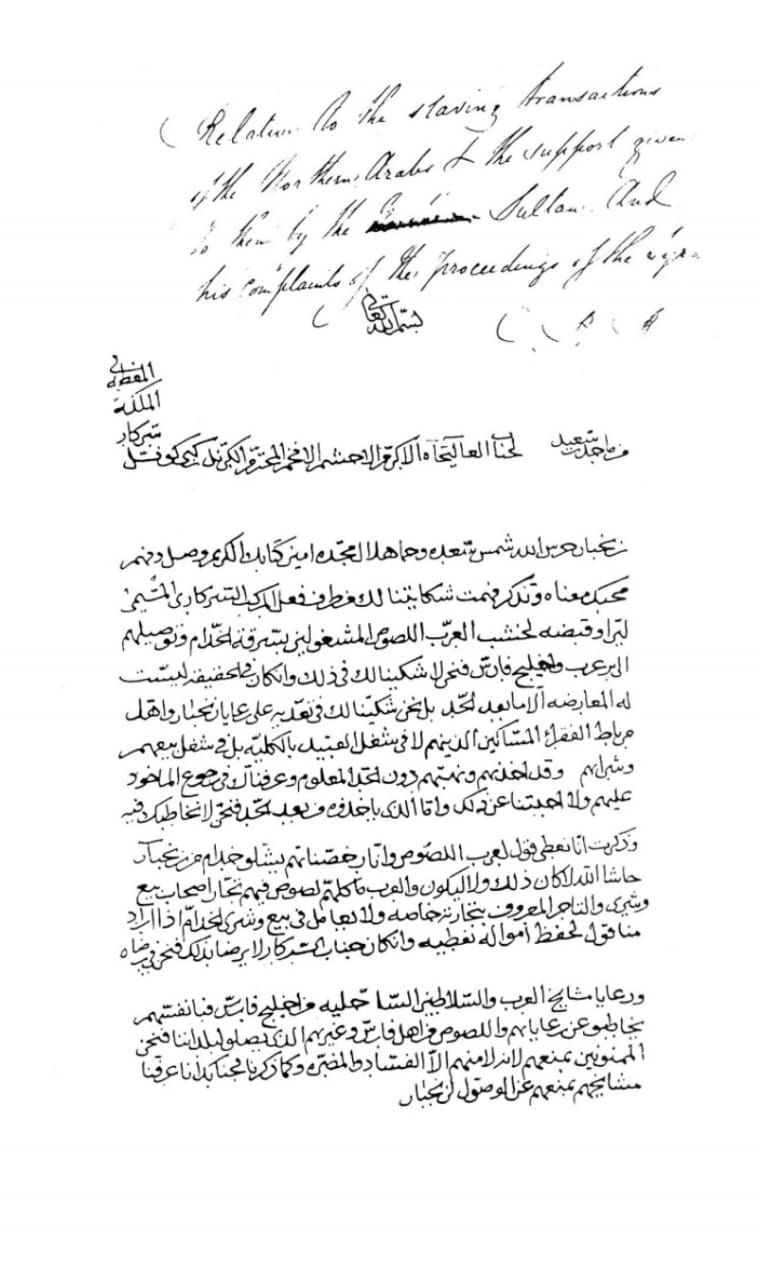 Relative to the slaving transactions
of the Northern Arabs & the support given
to them by the Sultan. And
his complaints of the proceedings of the
بسم الله تعالى
المعظمه
الملكة
سركار
من ماجد بن سعيد لجناب العاليجاه الاكرم الاحشم الافخم المحترم الكرنل كونسل
زنجبار حرس الله شمس وحماه امين كتابك الكريم وصل وفهم
محبك معناه وتذكر فهمت شكايتنا لك من طرف فعل المركب السركاري المسمى
وقبضه لخشب العرب اللصوص المشغولين بسرقة الخدام وتوصيلهم
الى بر عرب وخليج فارس فنحن لا شكينا لك في ذلك وانكان في الحقيقه ليست
له المعارضه الا ما بعد الحد بل نحن شكينا لك في تعديه على رعايا زنجبار واهل
مرباط الفقراء المساكين الذينهم لا في شغل العبيد بالكليه بل في شغل بيعهم
وشرائهم وقد اخذهم ونهبهم دون الحد المعلوم وعرفناك في رجوع الماخوذ
عليهم ولا اجبتنا عن ذلك واما الذي ياخذوه من بعد الحد فنحن لا نخاطبك فيه
وذكرت انا نعطي قول لعرب اللصوص وانا رخصناهم يشلو خدام من زنجبار
حاشا الله لا كان ذلك ولا ليكون والعرب ما كلهم لصوص فيهم تجار اصحاب بيع
وشرى والتاجر المعروف بتجارته خاصه ولا يعامل في بيع وشرى الخدام اذا اراد
منا قول لحفظ امواله نعطيه وانكان جناب السركار لا يرضا بذلك فنحن في رضاه
ورعايا مشايخ العرب والسلاطين الساحليه من خليج فارس فبانفسهم
يخاطبو عن رعاياهم واللصوص من اهل فارس وغيرهم الذي يصلو لبلداننا فنحن
الممنونين بمنعهم لانه لا منهم الا الفساد والمضره وكما ذكرنا لجنابك انا عرفنا
مشايخهم بمنعهم عن الوصول لزنجبار